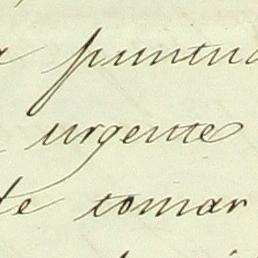 puntua
urgente
de tomar